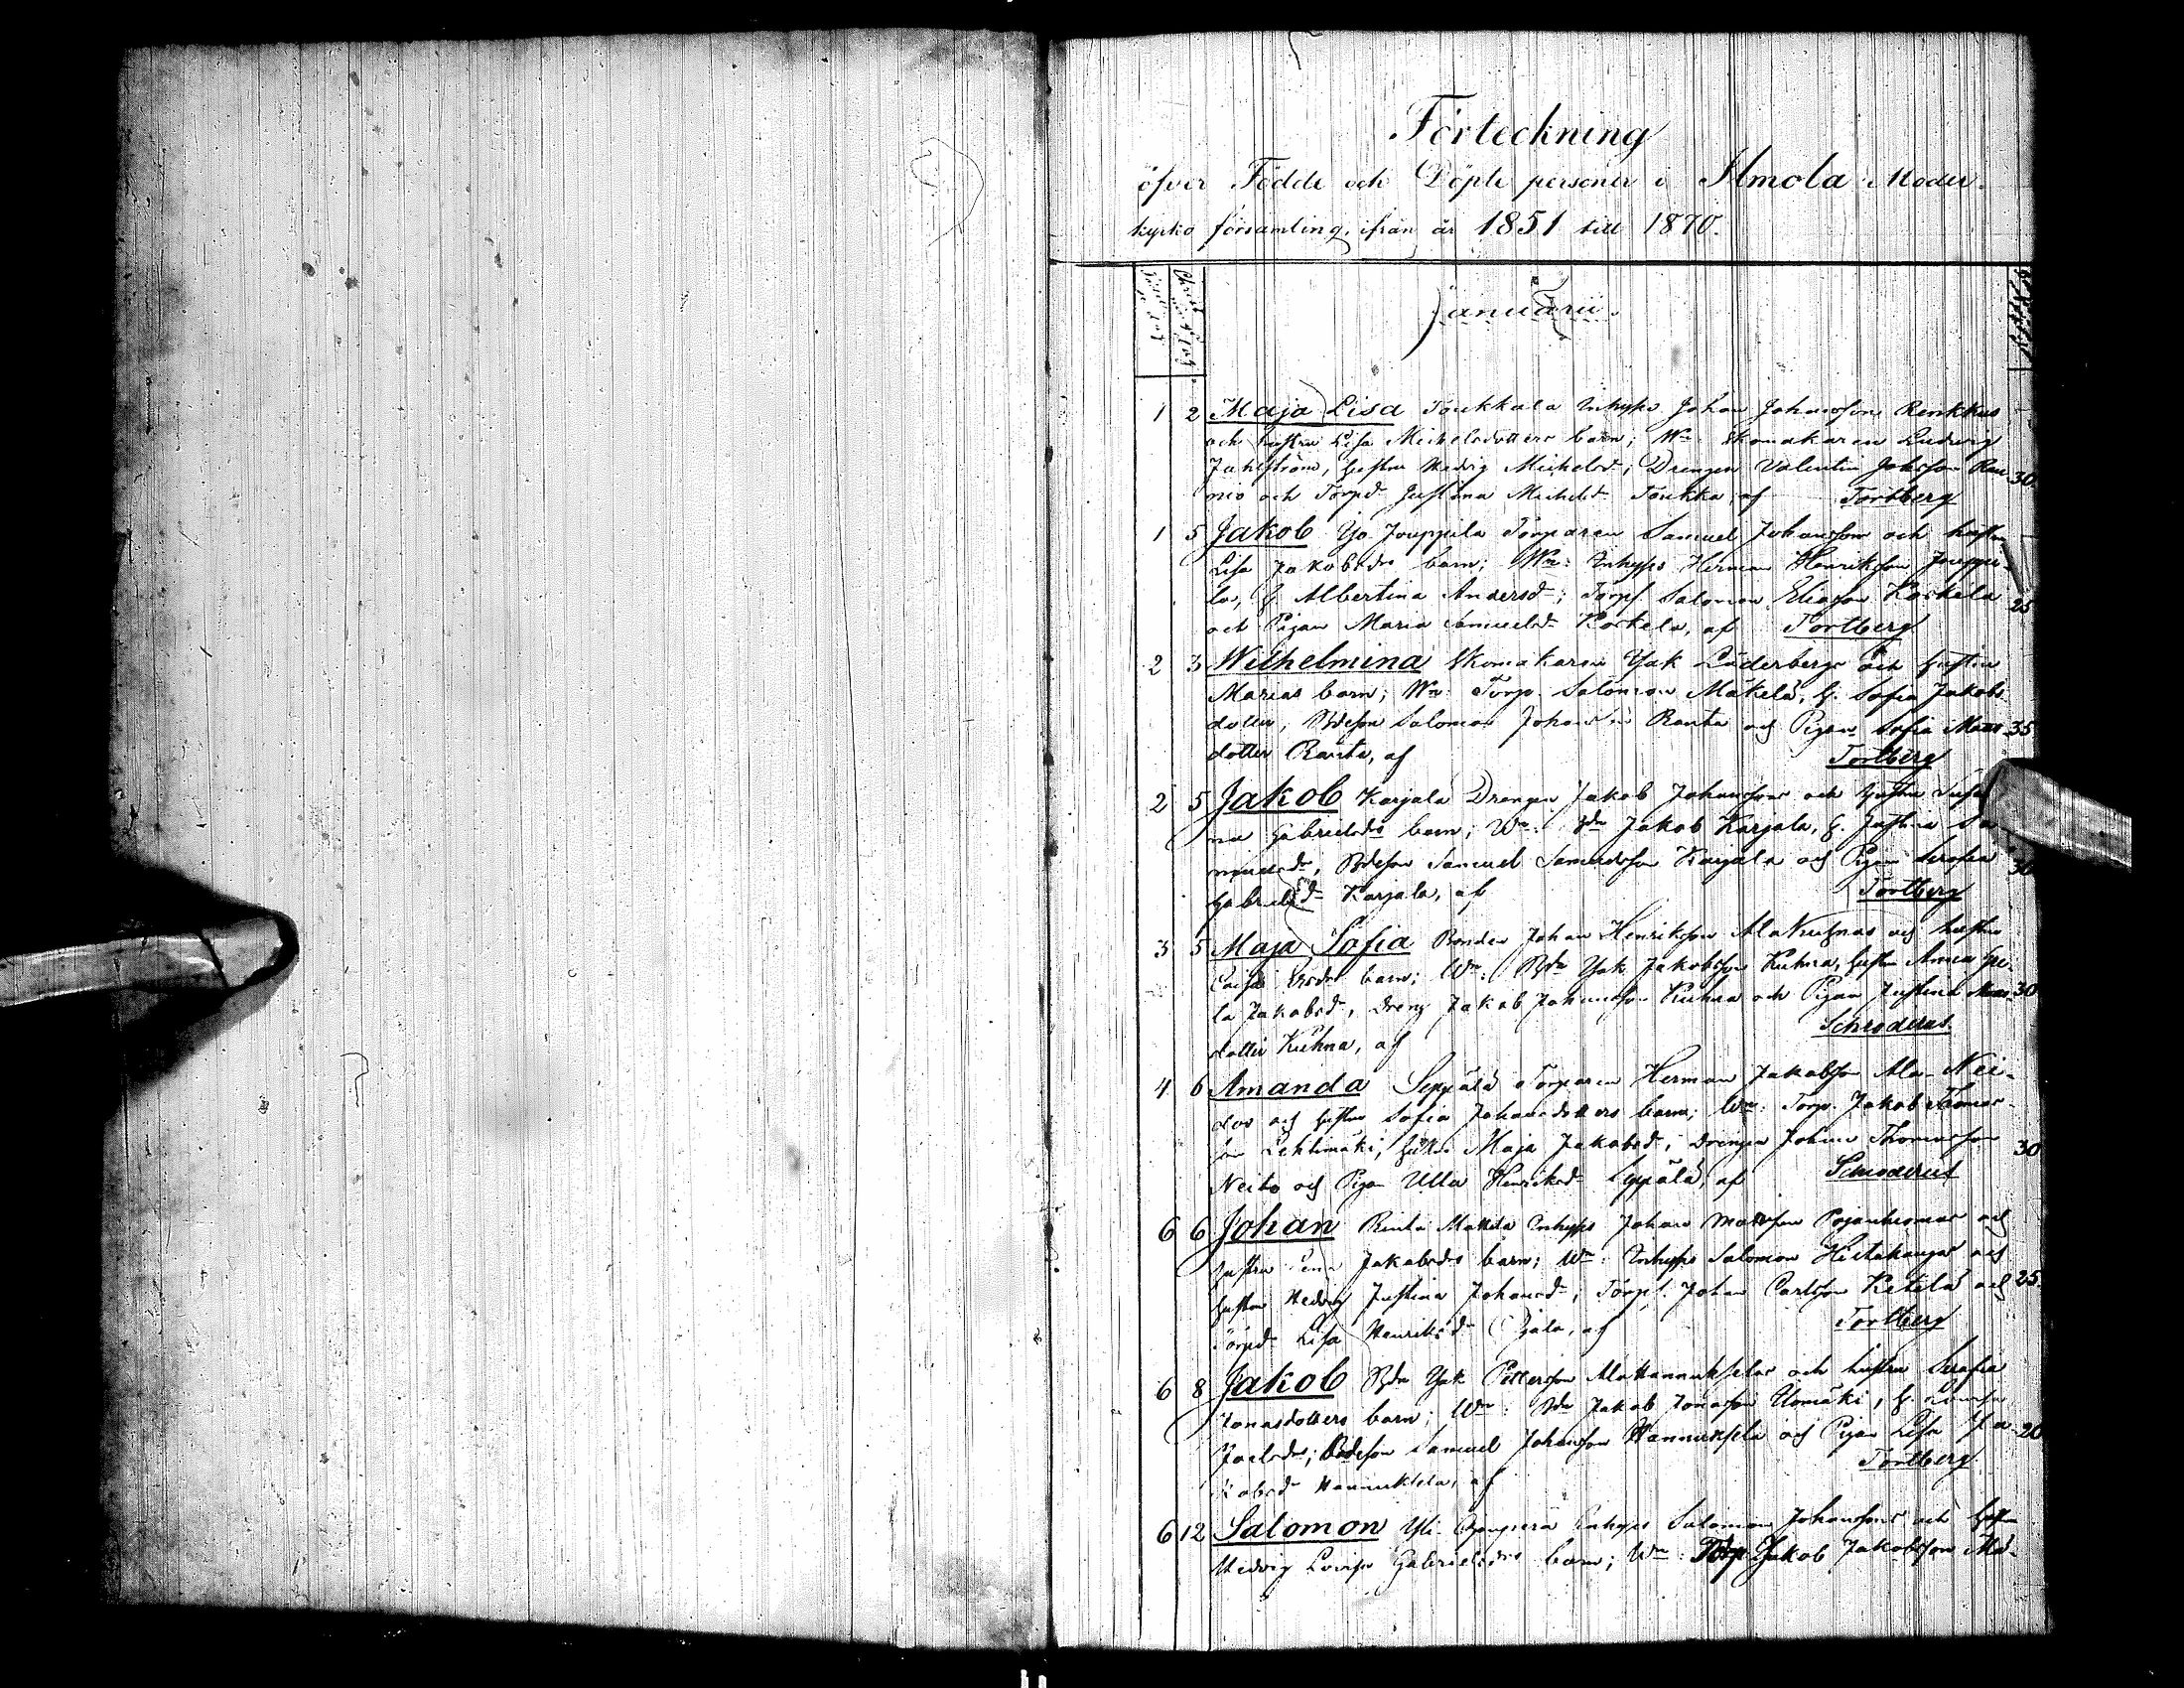 Förteckning
öfver Födde och Döpte personer i Ilmola Moder-
kyrko församling, ifrån år 1851 till 1870.
Januarii.
1 2 Maja Lisa Toukkala Inhyss Johan Johansson Renkkus
och hustru Lisa Michelsdotters barn; Wn: Skomakaren Ludvig
Hedvig Michelsd; Drengen Valentin Johansson Rau- 30
nio och Torpd Justina Michelsd Toukka, af Tortberg
1 5 Jakob Yo Jouppila Torparen Samuel Johansson och hustru
Lisa Jakobsdrs barn; Wn: Inhyss Herman Henriksson Jouppi-
la, H. Albertina Andersd; Torps. Salomon Eliasson Koskela 25
och Pigan Maria Samuelsd Koskela, af Tortberg
2 3 Wilhelmina Skomakaren Jak Söderbergs och hustru
Marias barn; Wn: Torp. Salomon Mäkelä, H. Sofia Jakobs
dotter, Bdeson Salomon Johansson Ranta och Pigan Sofia Matts 35
dotter Ranta, af Tortberg
2 5 Jakob Karjala Drengen Jakob Johanssons och hustru Susan
na Gabrielsdrs barn; Wn: Bdn Jakob Karjala, H. Justina Sa
muelsdr, Bdeson Samuel Samuelsson Karjala och Pigan Serafia 30
Gabrielsd Karjala, af Tortberg
3 5 Maja Sofia Bonden Johan Henriksson och hustru
barn; Wn: Bdn Jak Jakobsson Kuhna, hustru Anna He-
la Jakobsd, Dreng Jakob Johansson Kuhna och Pigan Justina Matts 30
dotter Kuhna, af Schroderus
4 6 Amanda Seppälä Torparen Herman Jakobsson Ala-Nei-
dos och hustru Sofia Johansdotters barn; Wn: Torp. Jakob Thomas-
son Lehtimäki, hustru Maja Jakobsd, Drengen Johan Thomasson 30
Neito och Pigan Ulla Henriksd Seppälä, af Schroderus
6 6 Johan Rinta Mattila Inhyss Johan Mattsson och
hustru Jakobsdrs barn; Wn: Inhyss Salomon Hietakangas och
hustru Hedvig Justina Johansd, Torps. Johan Carlsson Ketola och 25
Torpd Lisa Henriksd af Tortberg
6 8 Jakob Bdn Jak Pettersson Ala Hannukselas och hustru Serafia
Jonasdotters barn; Wn: Bdn Jakob Jonasson H. Lovisa
Joelsdr; Bdeson Samuel Johansson Hannuksela och Pigan Lisa Ja- 20
kobsd Hannuksela, af Tortberg
6 12 Salomon Yli Inhyss Salomon Johanssons och hustru
Hedvig Lovisa Gabrielsdrs barn; Wn: Torp Jakob Jakobsson Mä-